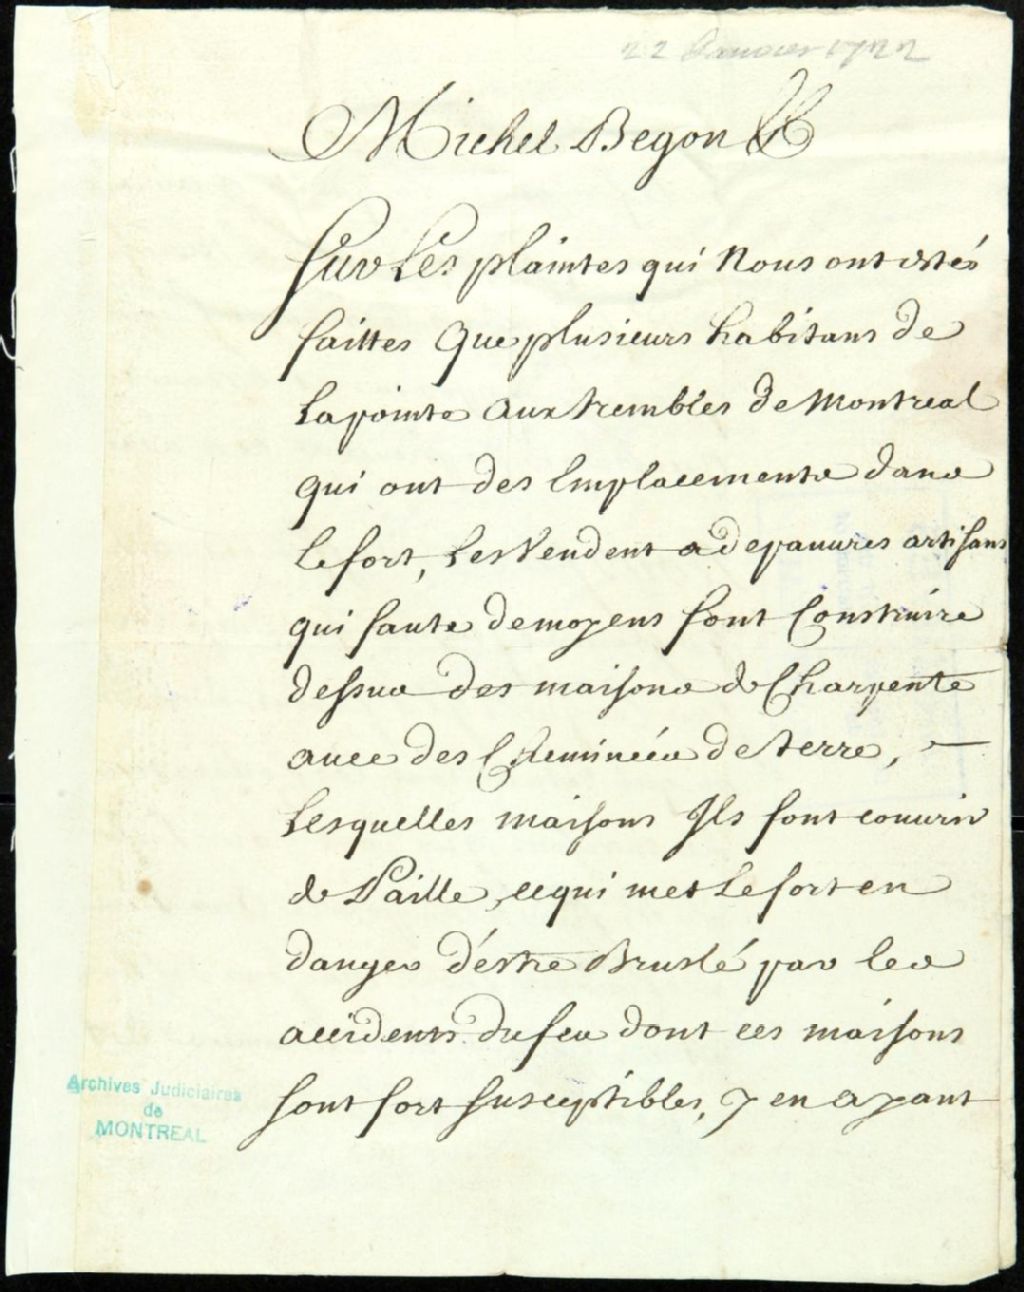 22 Janvier 1722
Michel Begon &
Sur Les plaintes qui Nous ont estés
faittes Que plusieurs habitans de
La pointe Aux trembles de Montreal
qui ont des Emplacements dans
Le fort, Les Vendent a de pauures artisans
qui faute de moyens font Construire
dessus des maisons de Charpente
auec des Cheminées de terre,
Lesquelles maisons Ils font couurir
de Paille, ce qui met Le fort en
danger d'éstre Bruslé par les
accidents du feu dont ces maisons
sont fort susceptibles, y en ayant
Archives Judiciaires
de
MONTREAL